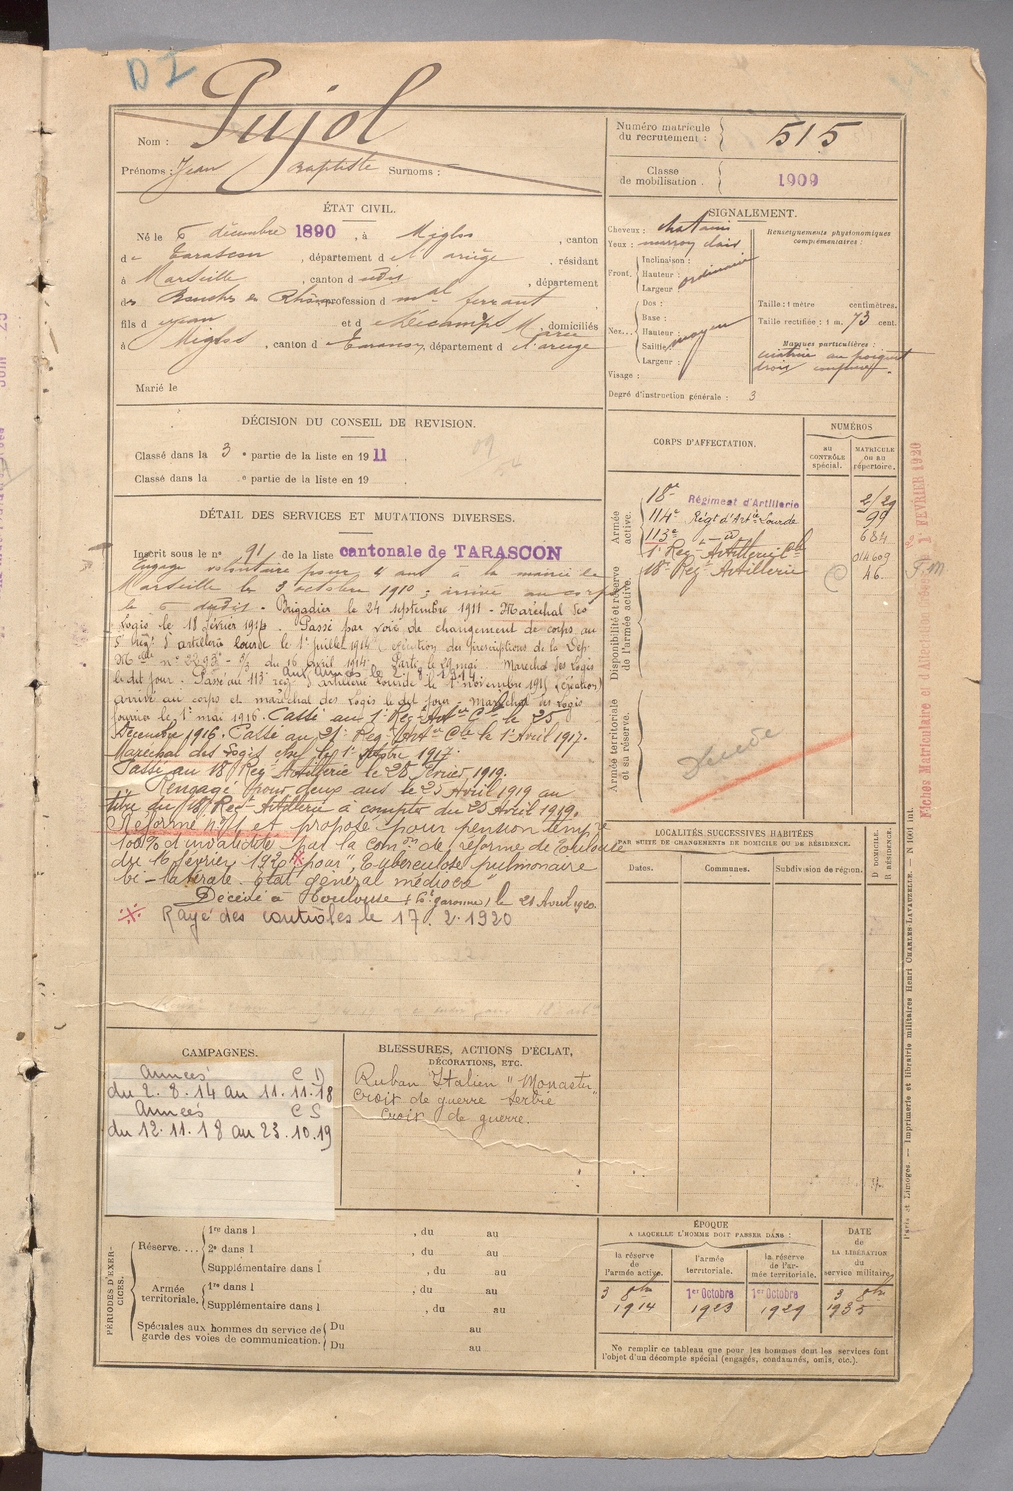 D I
Nom : Pujol
Prénoms : Jean Baptiste Surnoms :
Numéro matricule du recrutement : 515
Classe de mobilisation . 1909
ÉTAT CIVIL.
Né le 5 décembre 1890 , à Miglos , canton
de Tarascon , département de l'Ariège , résidant
à Marseille , canton d udit , département
des Bouches du Rhône profession d mal ferrant
fils d e Jean et d e Descamps Marie , domiciliés
à Miglos , canton d e Tarascon, département d e l'ariège
Marié le
SIGNALEMENT.
Cheveux : chatains
Yeux : marron clair.
Front. Inclinaison :
Hauteur : ordinaire
Largeur :
Nez... Dos :
Base :
Hauteur : moyen
Saillie :
Largeur :
Visage :
Renseignements physionomiques complémentaires :
Taille : 1 mètre centimètres.
Taille rectifiée : 1 m. 73 cent.
Marques particulières :
cicatrice au poignet
droit
Degré d'instruction générale : 3
DÉCISION DU CONSEIL DE REVISION.
Classé dans la 3 e partie de la liste en 1911 .
Classé dans la e partie de la liste en 19
09
CORPS D'AFFECTATION.
NUMÉROS
AU CONTRÔLE spécial.
MATRICULE OU AU répertoire.
Armée active.
18e Régiment d'Artillerie 2/29
114e Régt d'Artie Lourde 99
113e - d° - 684
1e Reg. Artillerie Cle 014609
Disponibilité et réserve de l'armée active.
18e Regt Artillerie 46.
Armée territoriale et sa réserve.
Décédé
DÉTAIL DES SERVICES ET MUTATIONS DIVERSES.
Inscrit sous le n° 91 de la liste cantonale de TARASCON
Engagé volontaire pour 4 ans à la mairie de
Marseille le 3 octobre 1910 ; arrivé au corps
le 5 dudit - Brigadier le 24 septembre 1911 - Maréchal des
Logis le 11 février 1914 . Passé par voie de changement de corps au
régt d'artillerie lourde le 1er juillet 1914 (exécution des prescriptions de la Dép.
Mlle n° 3292 - 5/3 du 16 avril 1914 Parti le 29 mai Maréchal des Logis
le dit jour . aux armées le 2.8.1914 Passé au 113e régt d'artillerie lourde le 1er novembre 1915 (création)
arrivé au corps et maréchal des Logis le dit jour - Maréchal des Logis
fourrier le 1er mai 1916 . Passé au 1e Reg. Artie Cle le 25
Décembre 1916 . Passé au 21e Reg. Artie Cle le 1er Avril 1917 .
Maréchal des Logis Chef le 1er 1917
Passé au 18e Regt Artillerie le 28 Février 1919.
Rengagé pour deux ans le 23 Avril 1919 au
titre du 18e Regt Artillerie à compter du 23 Avril 1919.
Réformé n° 1 et proposé pour pension temp.re
100% d'invalidité par la comon de réforme de Toulouse
du 16 février 1920 pour "Tuberculose pulmonaire
bi-latérale . État général médiocre"
Décédé à Toulouse (Hte garonne) le 21 Avril 1920
Rayé des contrôles le 17. 2. 1920
LOCALITÉS SUCCESSIVES HABITÉES
PAR SUITE DE CHANGEMENTS DE DOMICILE OU DE RÉSIDENCE.
Dates. Communes. Subdivision de région.
D DOMICILE. R RÉSIDENCE.
CAMPAGNES.
Armées C D
du 2. 8. 14 au 11. 11. 18
Armées C S
du 12. 11. 18 au 23. 10. 19
BLESSURES, ACTIONS D'ÉCLAT,
DÉCORATIONS, ETC.
Ruban Italien "Monastir"
Croix de guerre Serbie
Croix de guerre.
PÉRIODES D'EXERCICES.
Réserve.... 1re dans l , du au
2e dans l , du au
Supplémentaire dans l , du au
Armée territoriale. 1re dans l , du au
Supplémentaire dans l , du au
Spéciales aux hommes du service de garde des voies de communication. Du au
Du au
ÉPOQUE
A LAQUELLE L'HOMME DOIT PASSER DANS :
la réserve de l'armée active.
l'armée territoriale.
la réserve de l'armée territoriale.
DATE de LA LIBÉRATION du service militaire.
3 8bre 1914
1er Octobre 1923
1er Octobre 1929
3 8bre 1935
Ne remplir ce tableau que pour les hommes dont les services font
l'objet d'un décompte spécial (engagés, condamnés, omis, etc.).
Paris et Limoges. — Imprimerie et librairie militaires Henri CHARLES-LAVAUZELLE. — N 1001 int.